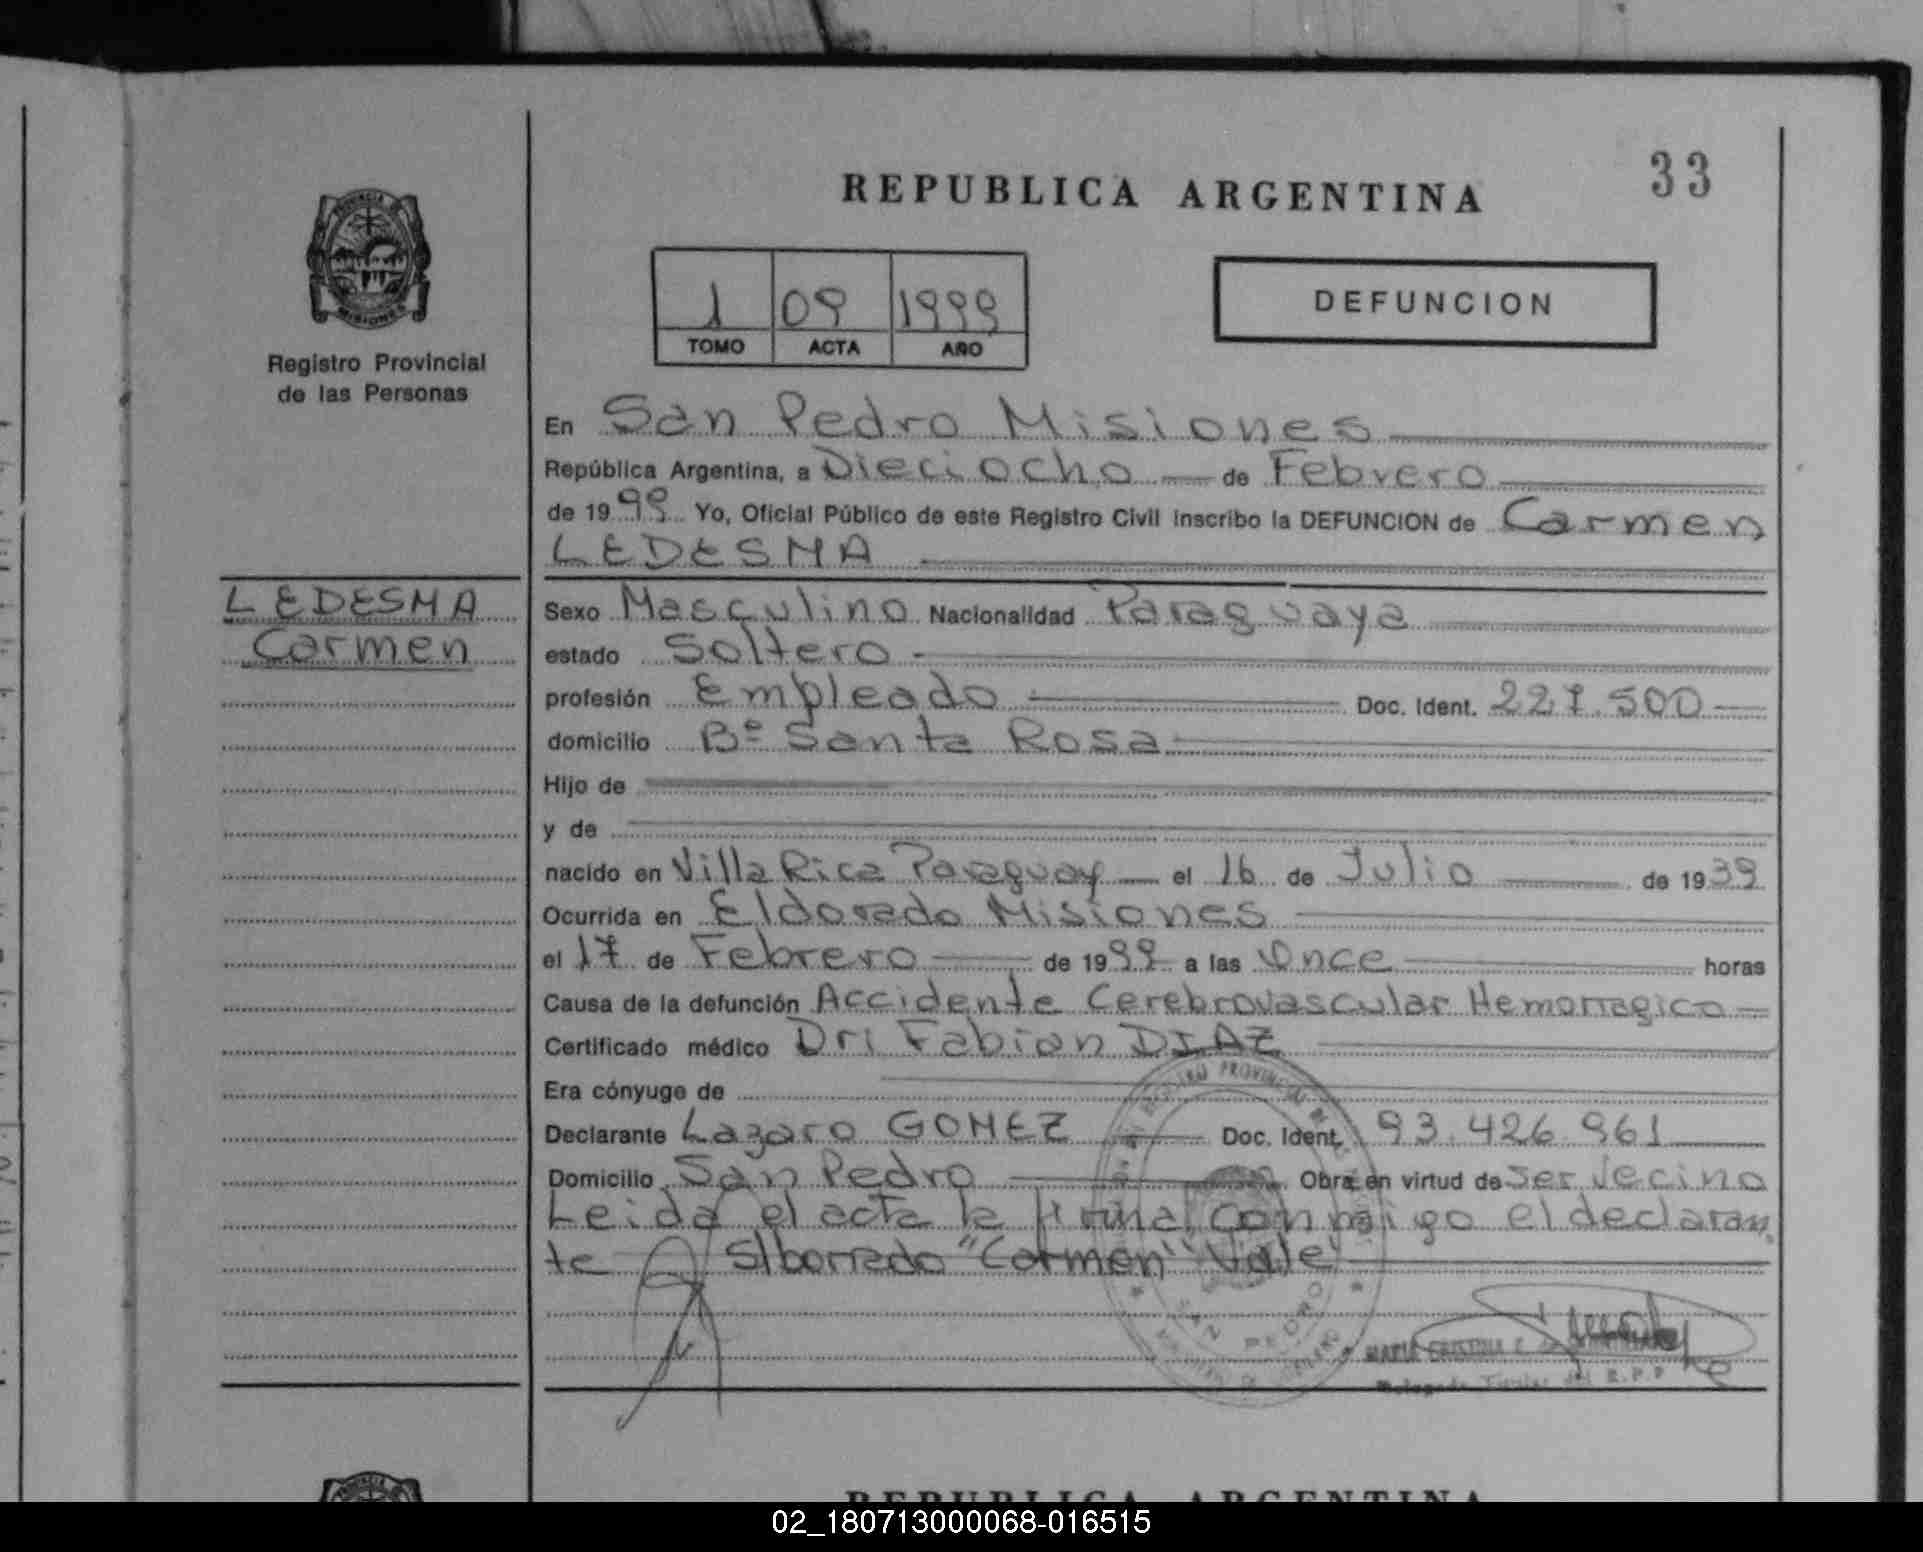 REPUBLICA ARGENTINA
33
PROVINCIA
MISIONES
Registro Provincial
de las Personas
1 09 1999
TOMO ACTA AÑO
DEFUNCION
En San Pedro Misiones
República Argentina, a Dieciocho de Febrero
de 1999 Yo, Oficial Público de este Registro Civil inscribo la DEFUNCION de Carmen
LEDESMA
LEDESMA
Carmen
Sexo Masculino Nacionalidad Paraguaya
estado Soltero
profesión Empleado Doc. Ident. 227.500
domicilio Bº Santa Rosa
Hijo de
y de
nacido en Villa Rica Paraguay el 16 de Julio de 1939
Ocurrida en Eldorado Misiones
el 17 de Febrero de 1999 a las Once horas
Causa de la defunción Accidente Cerebrovascular Hemorragico
Certificado médico Dr: Fabian DIAZ
Era cónyuge de
Declarante Lazaro GOMEZ Doc. Ident. 93.426.961
Domicilio San Pedro Obra en virtud de ser Vecino
Leida el acta la firma conmigo el declaran
te S/borrado "Carmen" Vale
REGISTRO PROVINCIAL DE
SAN PEDRO
MARIA CRISTINA E. de
Delegada Titular del R.P.P
REPUBLICA ARGENTINA
02_180713000068-016515